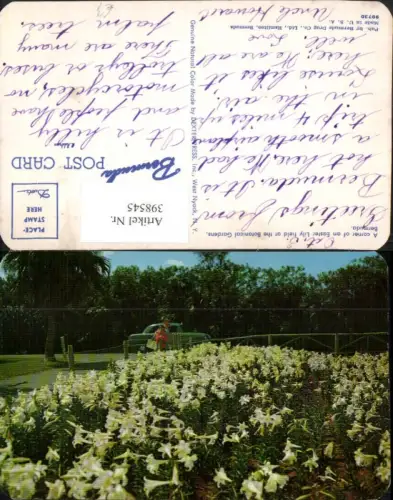 A corner of an Easter Lily field or the Botanical Gardens.
Bermuda
Greetings from
Bermuda. It is
hot here. We had
a smooth airplane
trip 4 miles up
in the air.
Louise likes it
here. We are all
well. Love
Uncle Howard
Genuine Natural Color Made by DEXTER PRESS, Inc., West Nyack, N. Y.
Pub. for Bermuda Drug Co., Ltd., Hamilton, Bermuda
Made in U. S. A.
98730
Bermuda
POST CARD
PLACE
STAMP
HERE
It is hilly
and people have
motorcycles, no
trolleys or buses.
There are many
palm trees.
Artikel Nr.
398545